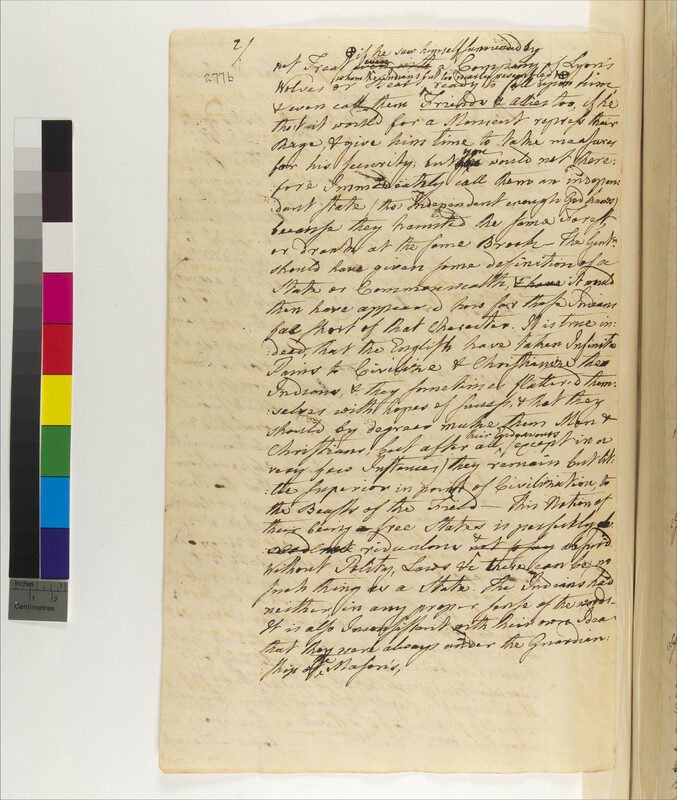 2/
277b
⊕ if he saw himself surrounded by
not Treat even with a Company of Lyons
even
whom the Indians full too nearly resembled ⊕
Wolves or Bears ready to fall upon him
& even call them Friends & allies too, if he
tho't it would for a Moment repress their
Rage, & give him time to take measures
for his security; but you would not there:
fore Immediately call them an indepen:
dant State (tho Independent enough God knows)
because they haunted the same Forest
or drank at the same Brook — The Gentn
should have given some definition of a
State or Commonwealth, & have it would
then have appeared how far these Indians
fall short of that Character. It is true in:
deed, that the English have taken Infinite
Pains to Civilize & Christianize the
Indians, & they sometimes flatter'd them:
:selves with hopes of success, & that they
should by degrees make them Men &
Christians, but after all their endeavours (except in a
very few Instances) they remain but lit:
:tle superior in point of Civilization, to
the Beasts of the Field — This Notion of
their being a free States is perfectly
ridiculous & not to say absurd
without Polity, Laws &c there can be no
such thing as a State. The Indians had
neither in any proper sense of the words.
It is also Inconsistent with their own Idea
that they were always under the Guardian:
ship of Masons,
Inches
1
2
Centimetres